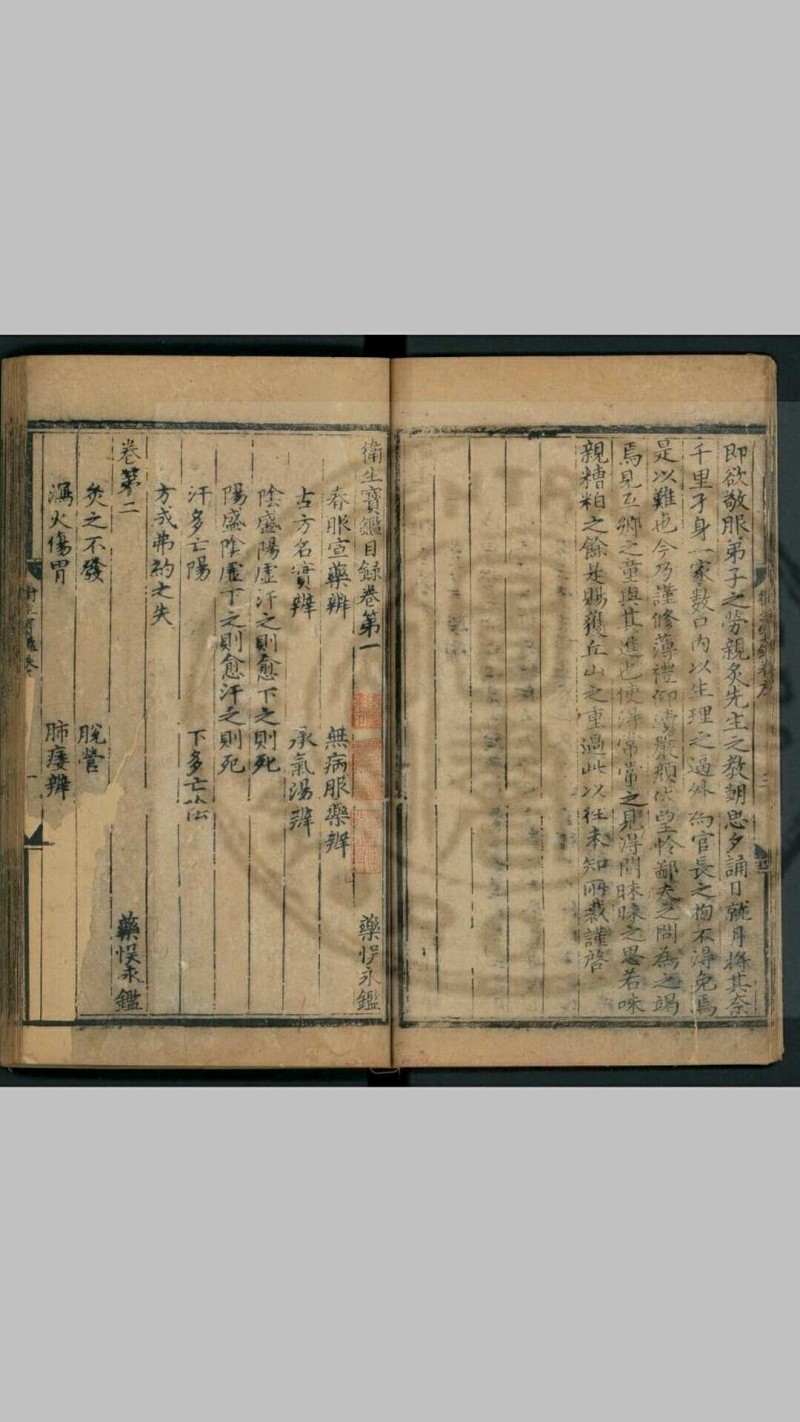 即欲敬服弟子之勞親炙先生之教朝思夕誦日就月將其奈
千里孑身一家數口內以生理之逼外為官長之拘不得免焉
是以難也今乃謹修薄禮仰瀆嚴顏伏望憐鄙夫之問為之竭
焉見互鄉之童與其進也使得常常之見得開昧昧之思若味
親糟粕之餘是賜獲丘山之重過此以往未知所裁謹啓
衛生寶鑑目錄卷第一 藥悮永鑑
春服宣藥辨 無病服藥辨
古方名實辨 承氣湯辨
陰盛陽虛汗之則愈下之則死
陽盛陰虛下之則愈汗之則死
汗多亡陽 下多亡
方成弗約之失
卷第二 藥悮永鑑
灸之不發 脫營
瀉火傷胃 肺痿辨